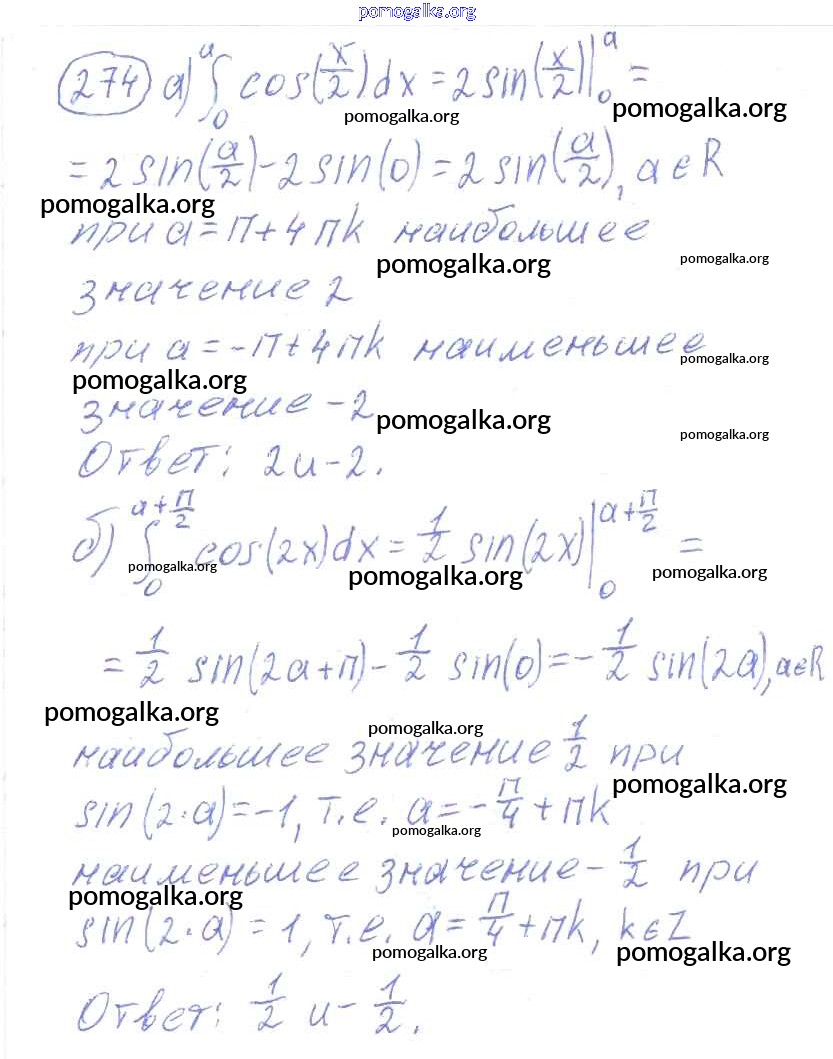 pomogalka.org
274 а) ∫₀ᵃ cos(x/2)dx = 2 sin(x/2)|₀ᵃ =
pomogalka.org pomogalka.org
= 2 sin(a/2) - 2 sin(0) = 2 sin(a/2), a ∈ R
pomogalka.org
при a = π + 4πk наибольшее
pomogalka.org pomogalka.org
значение 2
при a = -π + 4πk наименьшее
pomogalka.org pomogalka.org
значение -2
pomogalka.org pomogalka.org
Ответ: 2 и -2.
б) ∫₀^(a+π/2) cos(2x)dx = 1/2 sin(2x)|₀^(a+π/2) =
pomogalka.org pomogalka.org pomogalka.org
= 1/2 sin(2a+π) - 1/2 sin(0) = -1/2 sin(2a), a∈R
pomogalka.org pomogalka.org
наибольшее значение 1/2 при
pomogalka.org
sin(2·a) = -1, т.е. a = -π/4 + πk
pomogalka.org
наименьшее значение -1/2 при
pomogalka.org
sin(2·a) = 1, т.е. a = π/4 + πk, k∈Z
pomogalka.org pomogalka.org
Ответ: 1/2 и -1/2.